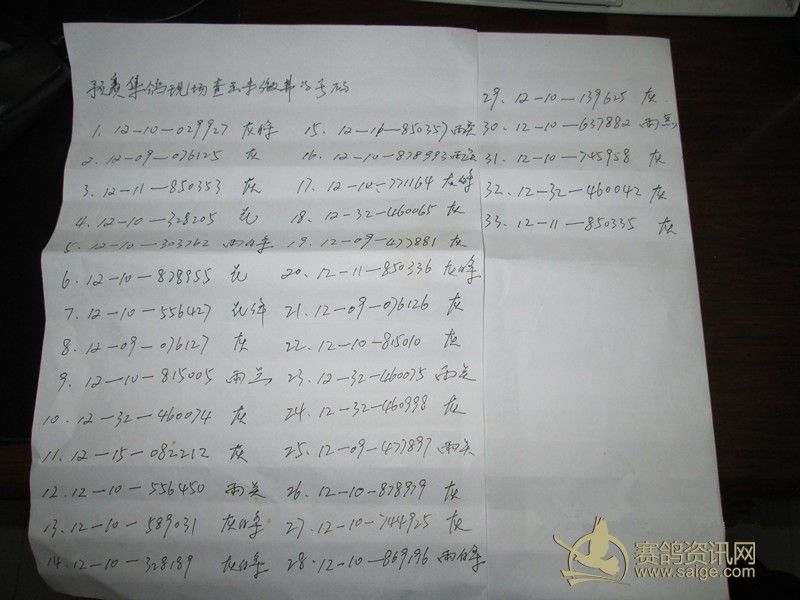 预赛集鸽现场查出未缴费的号码
1. 12-10-029927 灰绛
2. 12-09-076125 灰
3. 12-11-850353 灰
4. 12-10-328205 花
5. 12-10-303762 雨白条
6. 12-10-878955 花
7. 12-10-556427 花绛
8. 12-09-076127 灰
9. 12-10-815005 雨点
10. 12-32-460074 灰
11. 12-15-082212 灰
12. 12-10-556450 雨点
13. 12-10-589031 灰白条
14. 12-10-328189 灰白条
15. 12-11-850357 雨点
16. 12-10-878993 雨点
17. 12-10-771164 灰绛
18. 12-32-460065 灰
19. 12-09-477881 灰
20. 12-11-850336 灰白条
21. 12-09-076126 灰
22. 12-10-815010 灰
23. 12-32-460075 雨点
24. 12-32-460998 灰
25. 12-09-477897 雨点
26. 12-10-878979 灰
27. 12-10-744925 灰
28. 12-10-869196 雨白条
29. 12-10-139625 灰
30. 12-10-637882 雨点
31. 12-10-745958 灰
32. 12-32-460042 灰
33. 12-11-850335 灰
赛鸽资讯网
www.saige.com